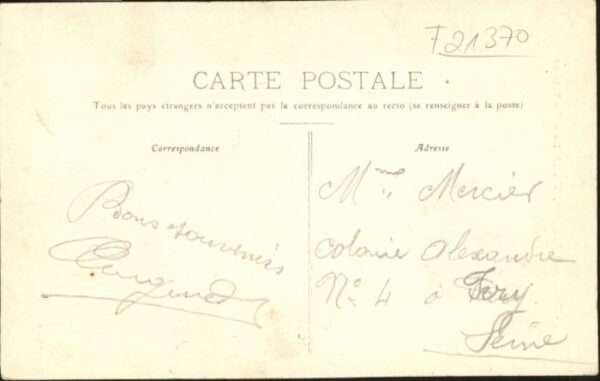 F21370
CARTE POSTALE
Tous les pays étrangers n'acceptent pas la correspondance au recto (se renseigner à la poste)
Correspondance
Adresse
Bons souvenirs
Mme Mercier
Colonie Alexandre
No 4 à Ivry
Seine